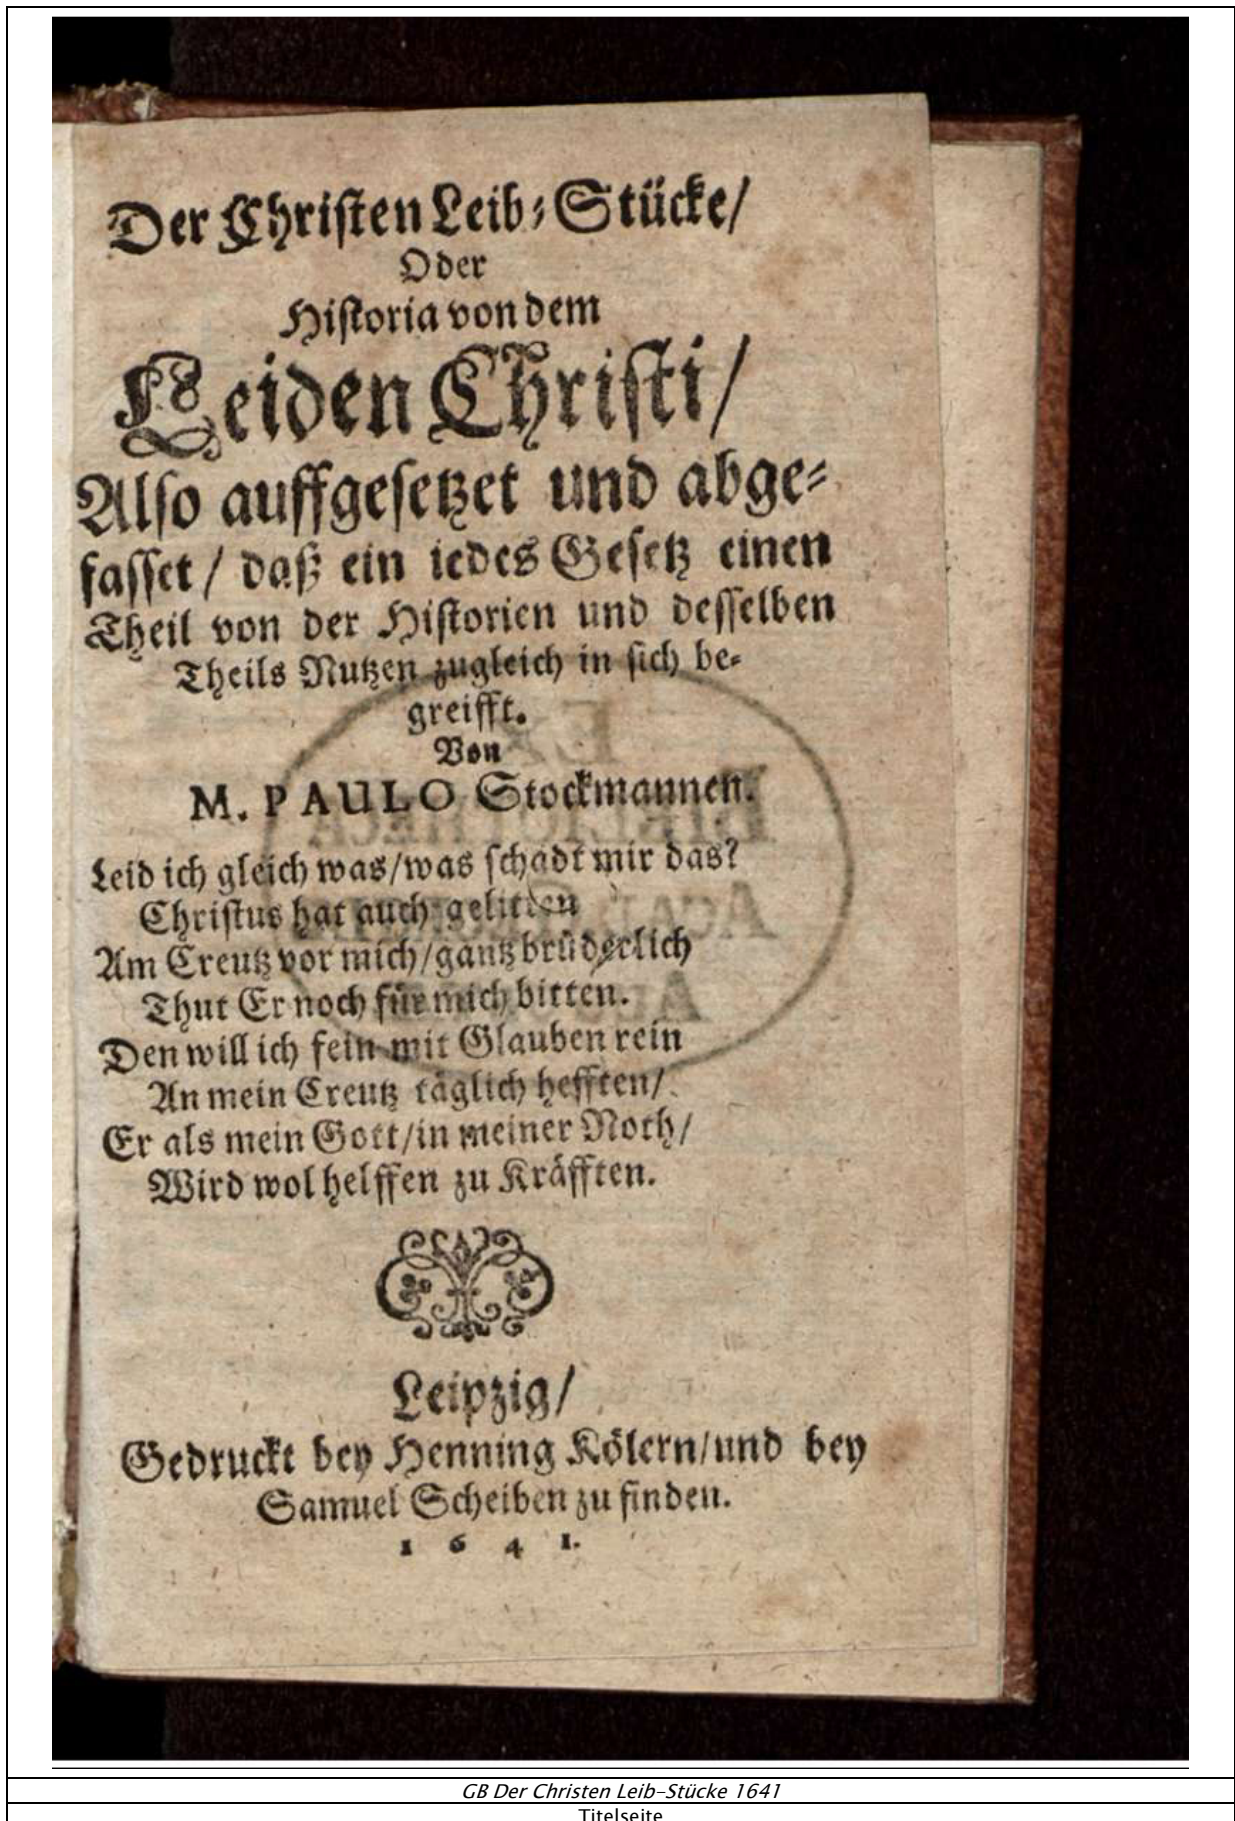 Der Christen Leib-Stücke/
Oder
Historia von dem
Leiden Christi/
Also auffgesetzet und abge-
fasset/ daß ein iedes Gesetz einen
Theil von der Historien und desselben
Theils Nutzen zugleich in sich be-
greifft.
Von
M. PAULO Stockmannen.
Leid ich gleich was/was schadt mir das?
Christus hat auch gelitten
Am Creutz vor mich/gantz brüderlich
Thut Er noch für mich bitten.
Den will ich fein mit Glauben rein
An mein Creutz täglich hefften/
Er als mein Gott/in meiner Noth/
Wird wol helffen zu Kräfften.
Leipzig/
Gedruckt bey Henning Kölern/und bey
Samuel Scheiben zu finden.
1 6 4 1.
EX
BIBLIOTHECA
GB Der Christen Leib-Stücke 1641
Titelseite